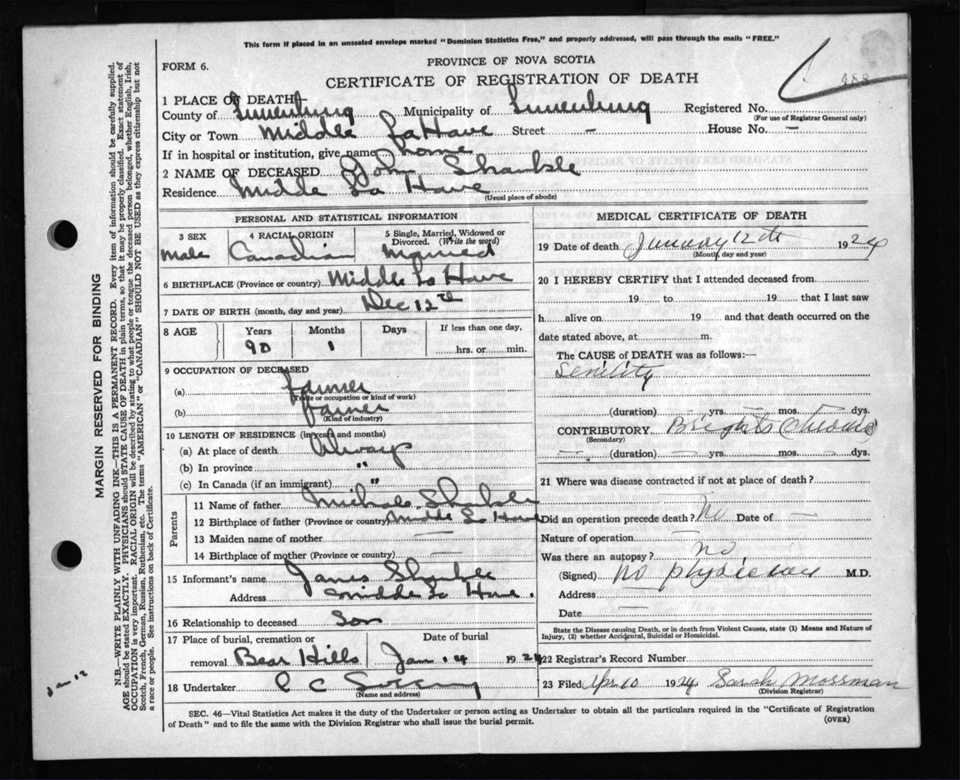 This form if placed in an unsealed envelope marked "Dominion Statistics Free," and properly addressed, will pass through the mails "FREE."
FORM 6.
PROVINCE OF NOVA SCOTIA
CERTIFICATE OF REGISTRATION OF DEATH
1 PLACE OF DEATH—
County of Lunenburg Municipality of Lunenburg Registered No.
(For use of Registrar General only)
City or Town Middle LaHave Street — House No. —
If in hospital or institution, give name home
2 NAME OF DECEASED John
Residence Middle La Have
(Usual place of abode)
PERSONAL AND STATISTICAL INFORMATION
3 SEX Male
4 RACIAL ORIGIN Canadian
5 Single, Married, Widowed or Divorced. (Write the word) Married
6 BIRTHPLACE (Province or country) Middle La Have
7 DATE OF BIRTH (month, day and year) Dec 12th
8 AGE Years Months Days If less than one day,
90 1 hrs. or min.
9 OCCUPATION OF DECEASED
(a) Farmer
(Trade or occupation or kind of work)
(b) Farmer
(Kind of industry)
10 LENGTH OF RESIDENCE (in years and months)
(a) At place of death Always
(b) In province "
(c) In Canada (if an immigrant) "
Parents
11 Name of father
12 Birthplace of father (Province or country) Middle La Have
13 Maiden name of mother —
14 Birthplace of mother (Province or country) —
15 Informant's name James
Address Middle La Have.
16 Relationship to deceased Son
17 Place of burial, cremation or removal Bear Hills
Date of burial Jan 14 1924
18 Undertaker C C
(Name and address)
MEDICAL CERTIFICATE OF DEATH
19 Date of death January 12th 1924
(Month, day and year)
20 I HEREBY CERTIFY that I attended deceased from
19 to 19 that I last saw
h alive on 19 and that death occurred on the
date stated above, at m.
The CAUSE of DEATH was as follows:
Senility
(duration) — yrs. — mos. — dys.
CONTRIBUTORY Brights
(Secondary)
(duration) — yrs. — mos. — dys.
21 Where was disease contracted if not at place of death?
Did an operation precede death? No Date of —
Nature of operation —
Was there an autopsy? no,
(Signed) no physician M.D.
Address —
Date —
State the Disease causing Death, or in death from Violent Causes, state (1) Means and Nature of Injury, (2) whether Accidental, Suicidal or Homicidal.
22 Registrar's Record Number
23 Filed Apr 10 1924 Sarah Mossman
(Division Registrar)
SEC. 46—Vital Statistics Act makes it the duty of the Undertaker or person acting as Undertaker to obtain all the particulars required in the "Certificate of Registration
of Death" and to file the same with the Division Registrar who shall issue the burial permit. (OVER)
MARGIN RESERVED FOR BINDING
N.B.—WRITE PLAINLY WITH UNFADING INK—THIS IS A PERMANENT RECORD. Every item of information should be carefully supplied.
AGE should be stated EXACTLY. PHYSICIANS should STATE CAUSE OF DEATH in plain terms, so that it may be properly classified. Exact statement of
OCCUPATION is very important. RACIAL ORIGIN will be described by stating to what people or tongue the deceased person belonged, whether English, Irish,
Scotch, French, German, Russian, Ruthenian, etc. The terms "AMERICAN" or "CANADIAN" SHOULD NOT BE USED as they express citizenship but not
a race or people. See instructions on back of Certificate.
Jan 12